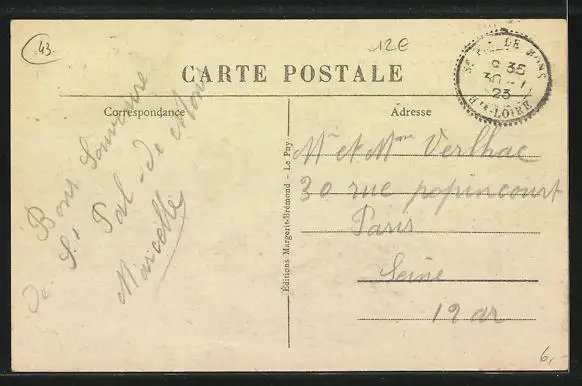 43
12€
CARTE POSTALE
Correspondance
Adresse
Bons Souvenire
de St Pal-de Mons
Marcelle
Editions Margerit-Brémond - Le Puy
St PAL DE MONS
8 35
30 - 11
23
Hte-LOIRE
Mr et Mme Verlhac
30 rue popincourt
Paris
Seine
12 ar
6,